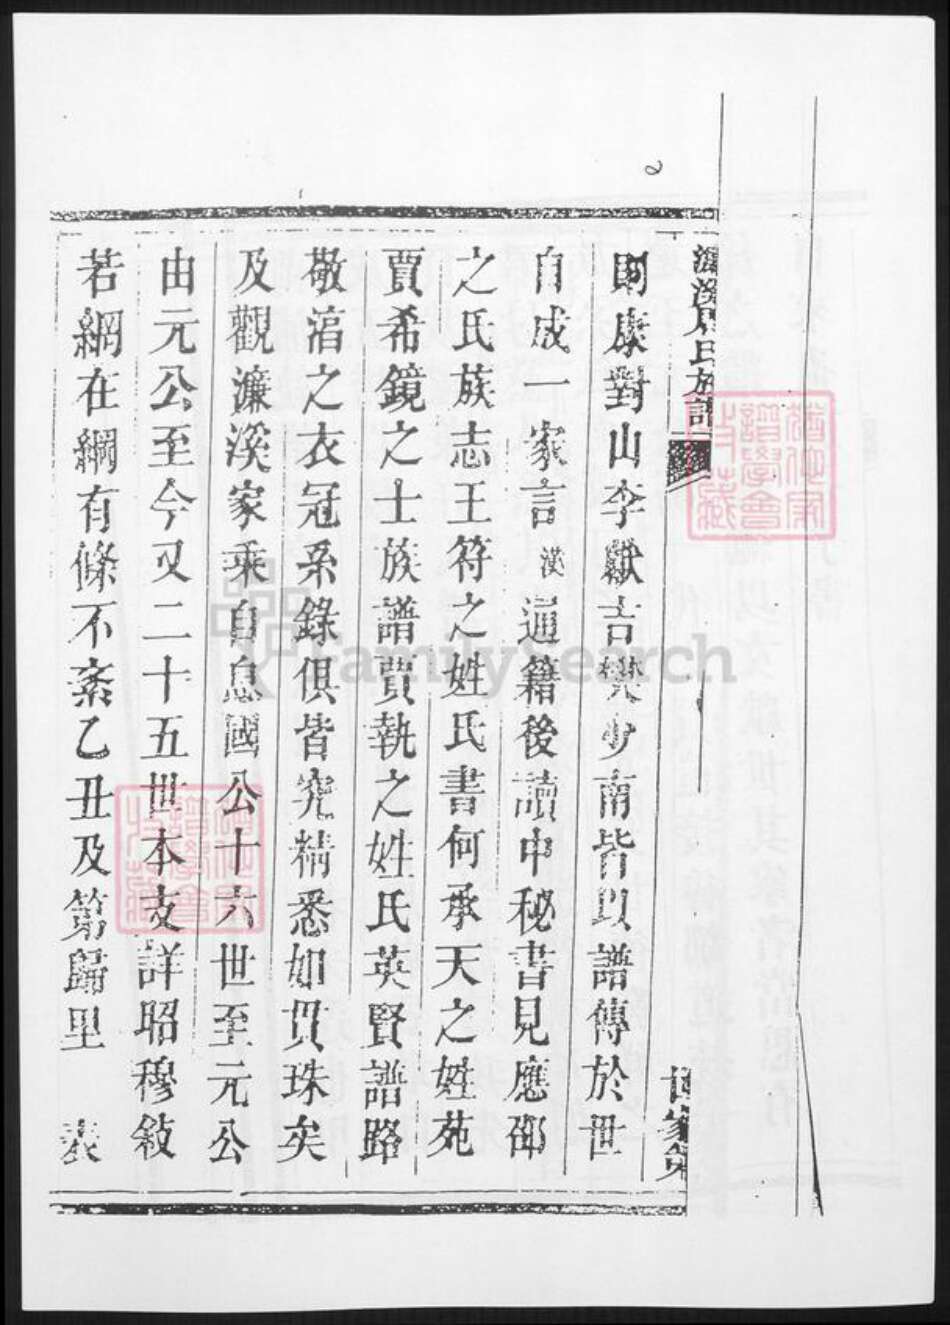 濂溪周氏族譜
世家第
則康對山李獻吉樊少南皆以譜傳於世
自成一家言漢通籍後讀中秘書見應邵
之氏族志王符之姓氏書何承天之姓苑
賈希鏡之士族譜賈執之姓氏英賢譜路
敬淳之衣冠系錄俱皆究精悉如貫珠矣
及觀濂溪家乘自息國公十六世至元公
由元公至今又二十五世本支詳昭穆敍
若網在綱有條不紊乙丑及第歸里 表
FamilySearch